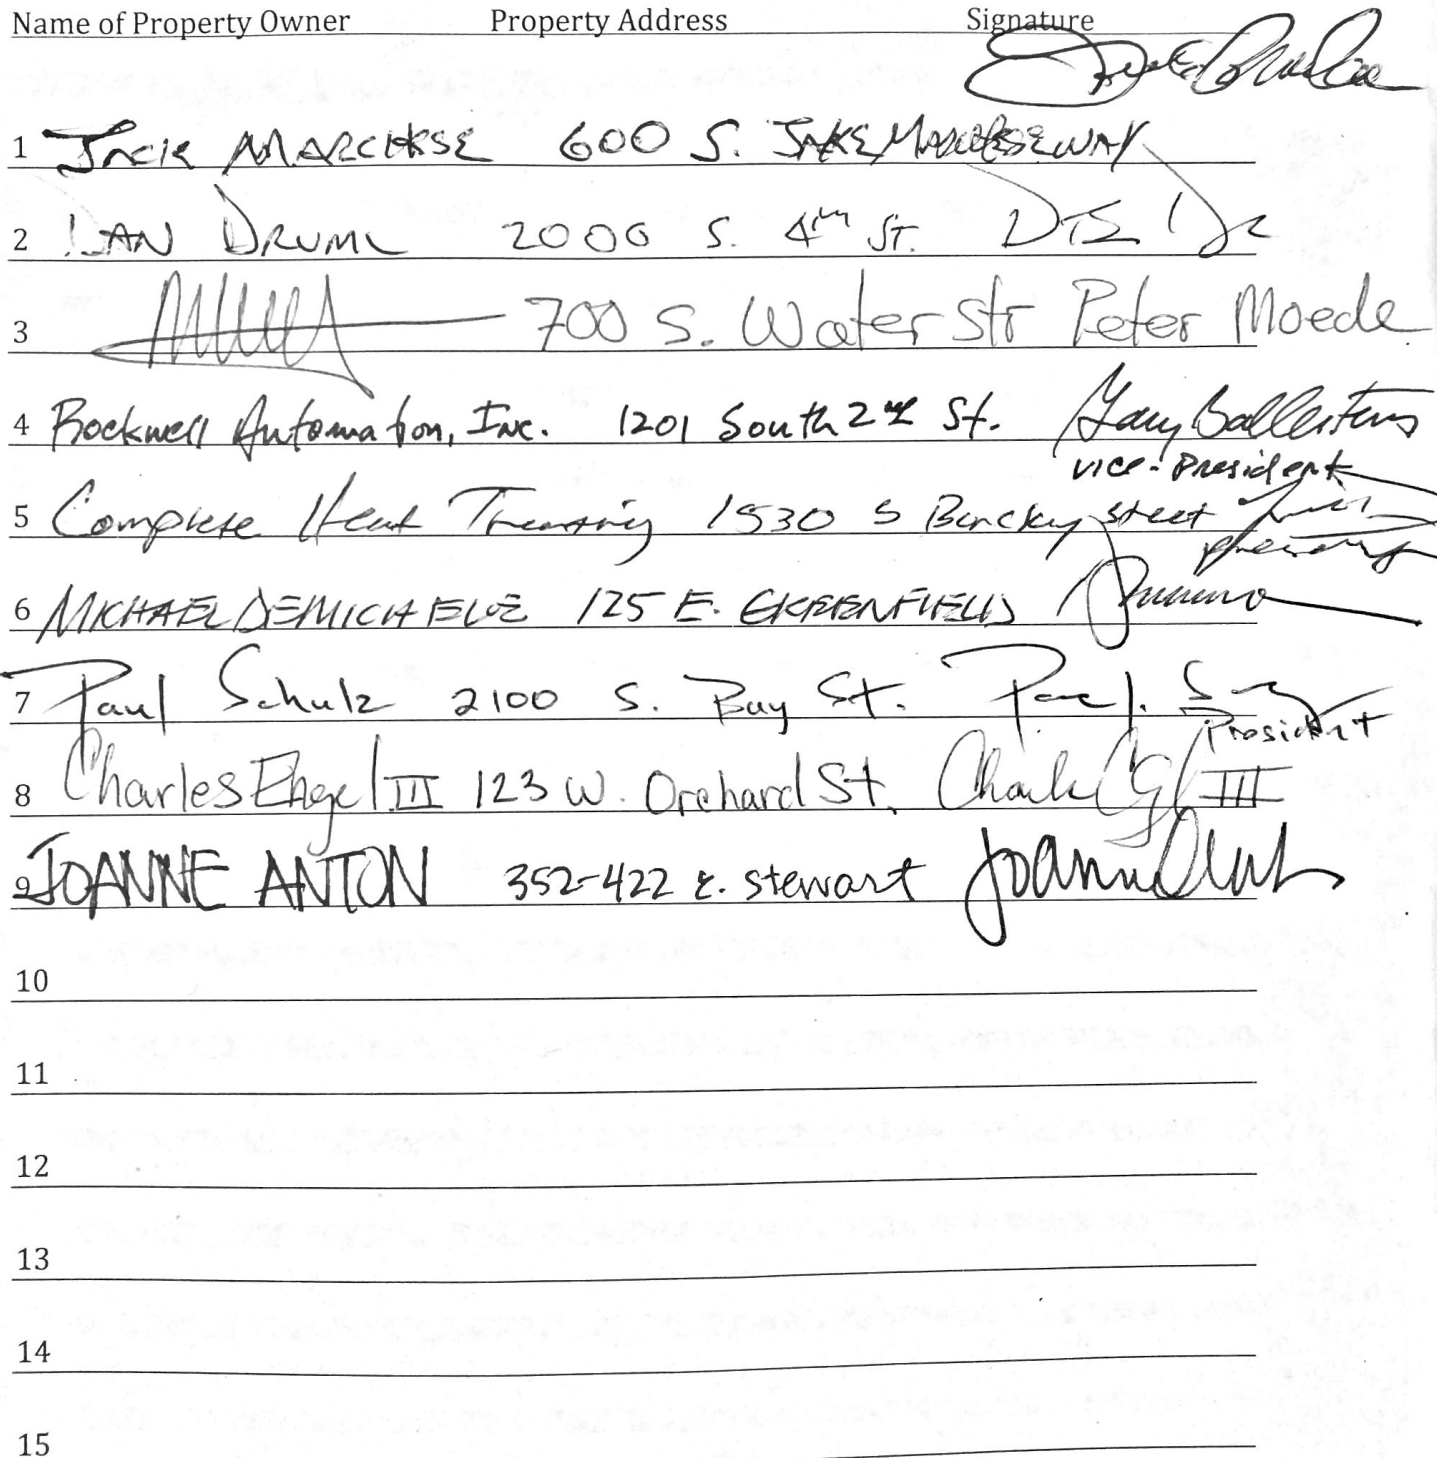 Name of Property Owner Property Address Signature
1 JACK MARCHESE 600 S. JAKE MARCHESE WAY
2 DAN DRUML 2000 S. 4th ST.
3 700 S. Water Str Peter Moede
4 Rockwell Automation, Inc. 1201 South 2nd St. Gary Ballesteros
vice-President
5 Complete Heat Treating 1530 S street
president
6 MICHAEL DEMICHELE 125 E. GREENFIELD
7 Paul Schulz 2100 S. Bay St. Paul J.
President
8 Charles Engel III 123 W. Orchard St. III
9 JOANNE ANTON 352-422 E. Stewart Joanne Anton
10
11
12
13
14
15